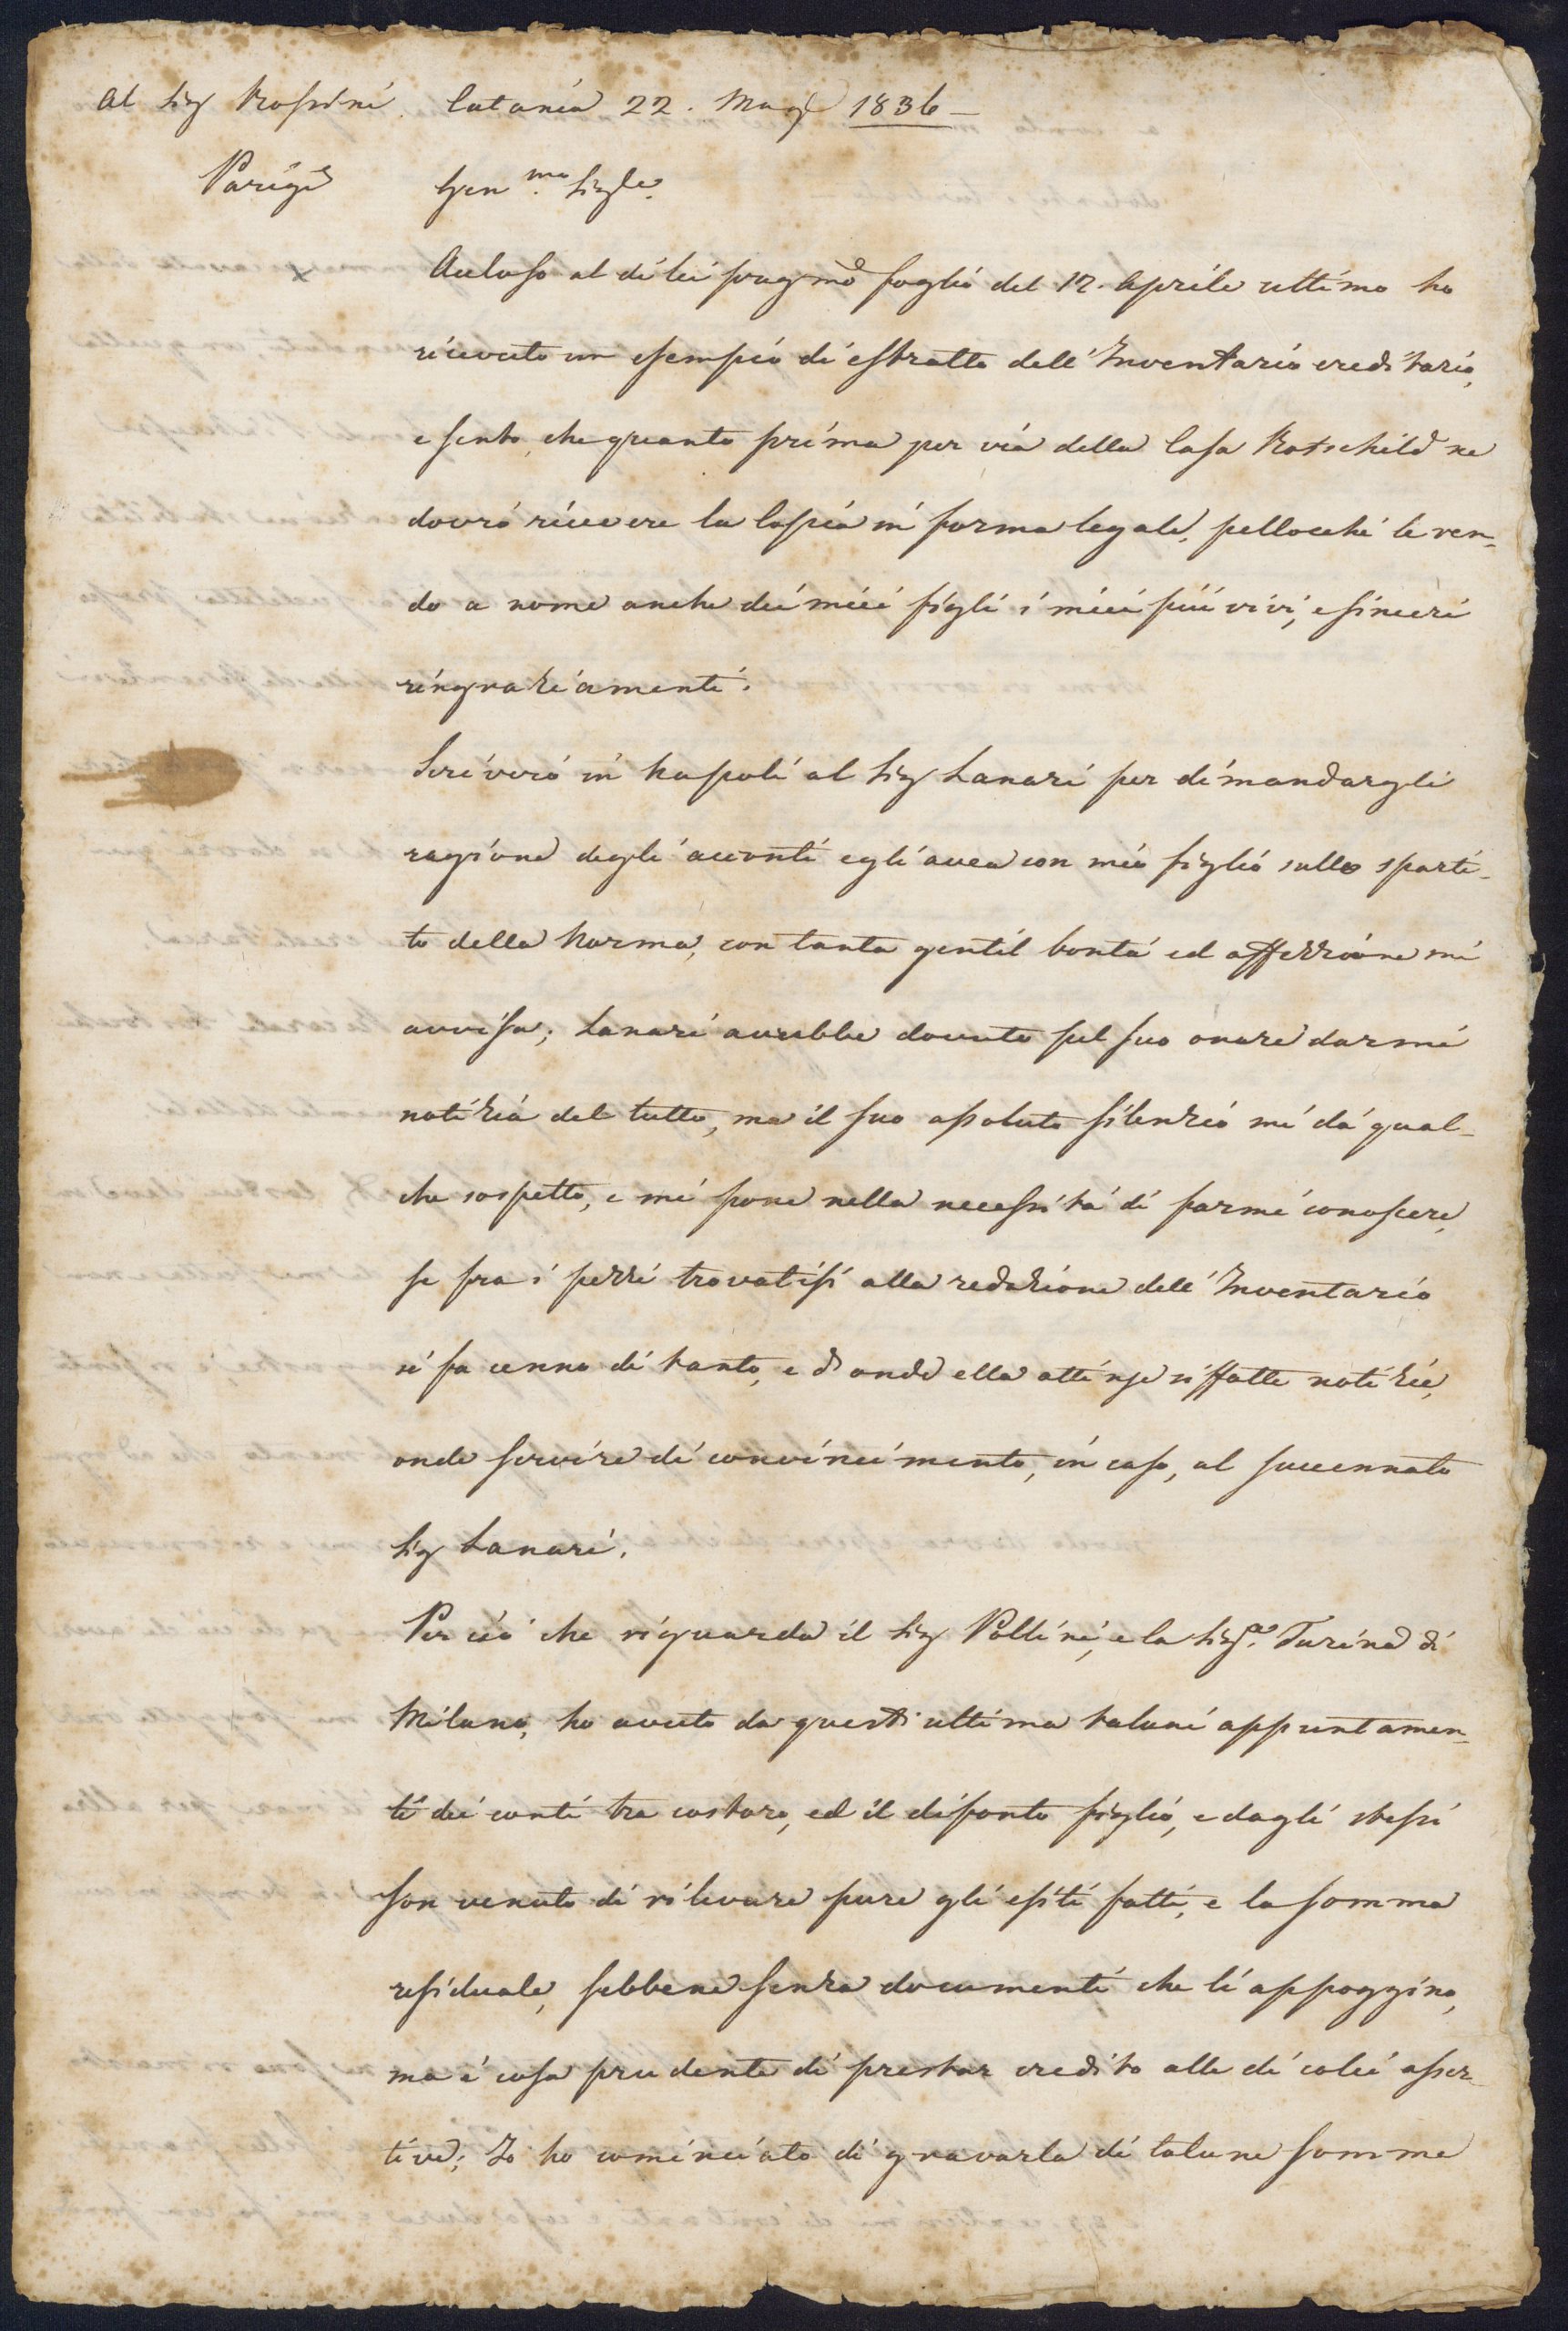 Al Sig Rossini. Catania 22. Magg 1836 —
Parigi Gen.mo Sigre.
Accluso al di lei pregmo foglio del 12. Aprile ultimo ho
ricevuto un esempio di estratto dell'Inventario ereditario,
e sento, che quanto prima per via della Casa Rotschild ne
dovrò ricevere la Copia in forma legale, pellocchè le ren-
do a nome anche dei miei figli i miei più vivi, e sinceri
ringraziamenti.
Scriverò in Napoli al Sig Lanari per dimandargli
ragione degli acconti egli avea con mio figlio sullo sparti-
to della Norma, con tanta gentil bontà ed affezzione mi
avvisa; Lanari avrebbe dovuto pel suo onore darmi
notizia del tutto, ma il suo assoluto silenzio mi dà qual-
che sospetto, e mi pone nella necessità di farmi conoscere,
se fra i pezzi trovatisi alla redazione dell'Inventario
si fa cenno di tanto, e d'onde ella attinse siffatte notizie,
onde servire di convincimento, in caso, al succennato
Sig Lanari.
Per ciò che riguarda il Sig Pollini, e la Sig.a Turina di
Milano, ho avuto da quest'ultima taluni appuntamen-
ti dei conti tra costoro, ed il difonto figlio, e dagli stessi
son venuto di rilevare pure gli esiti fatti, e la somma
residuale, sebbene senza documenti che li appoggino,
ma è cosa prudente di prestar credito alle di colei asser-
tive; Io ho cominciato di gravarla di talune somme